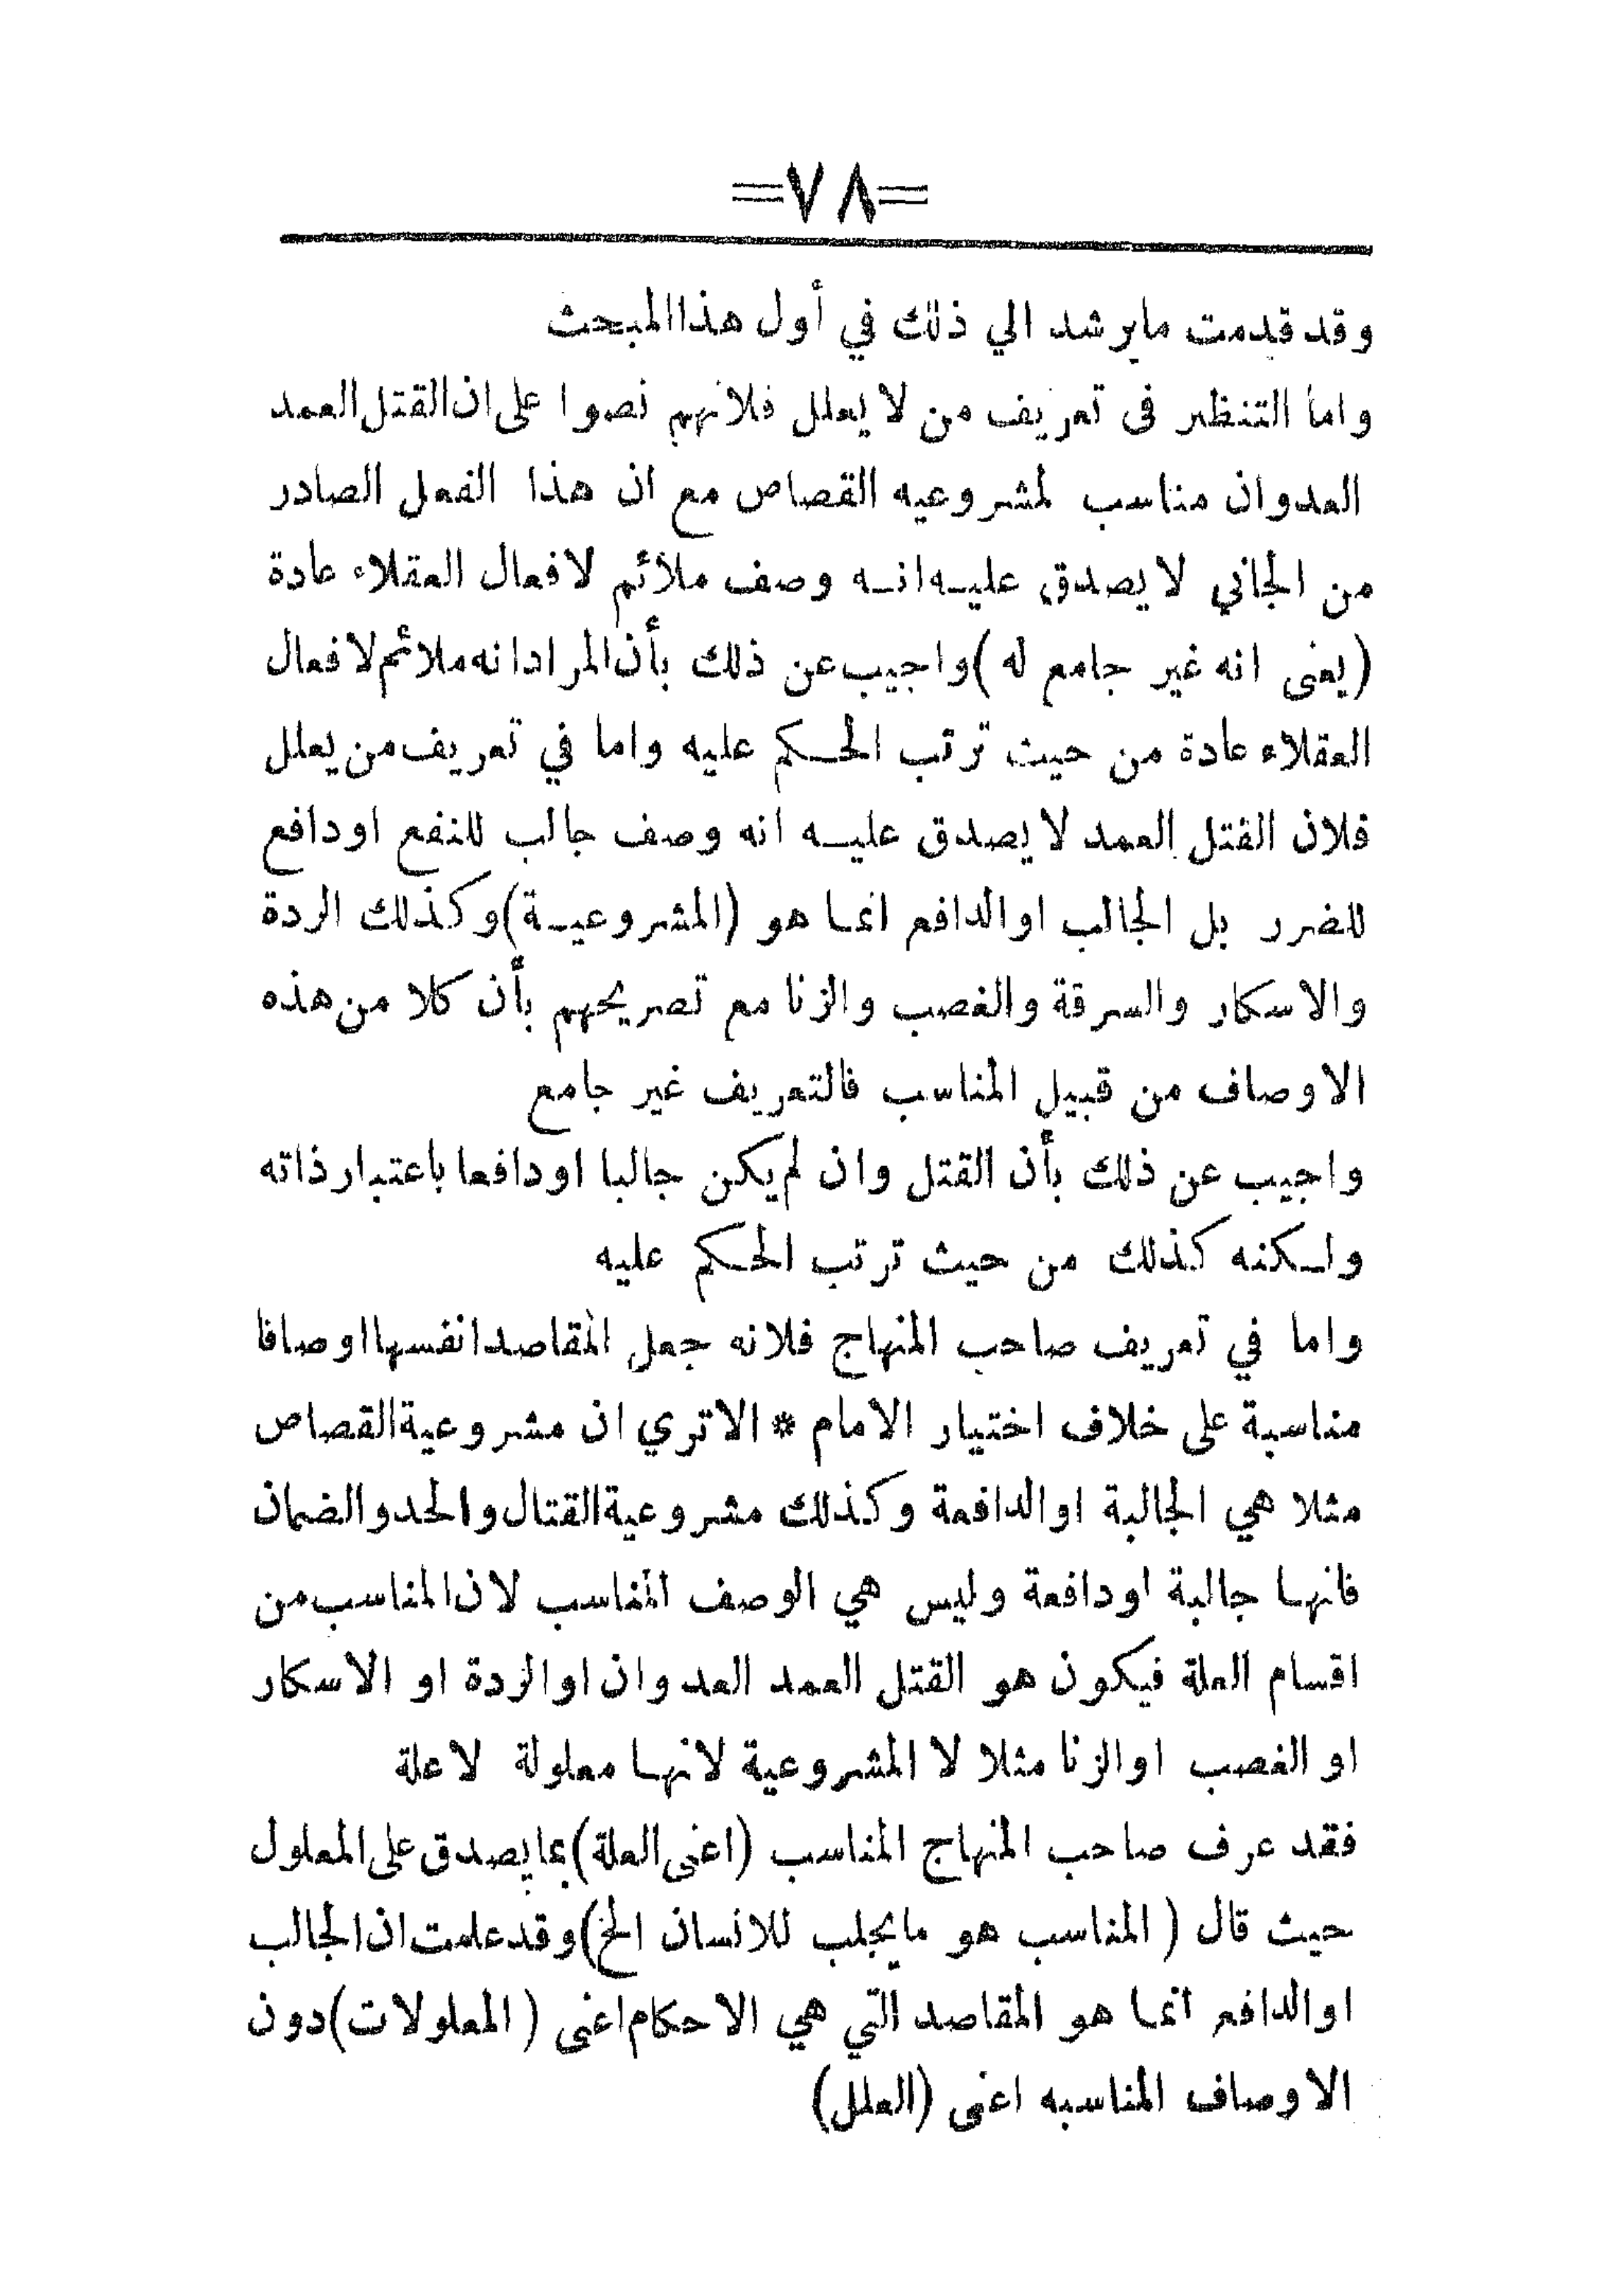 =٧٨=
وقد قدمت مايرشد الي ذلك في أول هذا المبحث
واما التنظير فى تعريف من لا يعلل فلانهم نصوا على ان القتل العمد
العدوان مناسب لمشروعيه القصاص مع ان هذا الفعل الصادر
من الجاني لا يصدق عليه انه وصف ملائم لافعال العقلاء عادة
(يعنى انه غير جامع له) واجيب عن ذلك بأن المراد انه ملائم لافعال
العقلاء عادة من حيث ترتب الحكم عليه واما في تعريف من يعلل
فلان القتل العمد لا يصدق عليه انه وصف جالب للنفع او دافع
للضرر بل الجالب او الدافع انما هو (المشروعية) وكذلك الردة
والاسكار والسرقة والغصب والزنا مع تصريحهم بأن كلا من هذه
الاوصاف من قبيل المناسب فالتعريف غير جامع
واجيب عن ذلك بأن القتل وان لم يكن جالبا او دافعا باعتبار ذاته
ولكنه كذلك من حيث ترتب الحكم عليه
واما في تعريف صاحب المنهاج فلانه جعل المقاصد انفسها اوصافا
مناسبة على خلاف اختيار الامام * الاتري ان مشروعية القصاص
مثلا هي الجالبة او الدافعة وكذلك مشروعية القتال والحد والضمان
فانها جالبة او دافعة وليس هي الوصف المناسب لان المناسب من
اقسام العلة فيكون هو القتل العمد العدوان او الردة او الاسكار
او الغصب او الزنا مثلا لا المشروعية لانها معلولة لا علة
فقد عرف صاحب المنهاج المناسب (اعنى العلة) بما يصدق على المعلول
حيث قال (المناسب هو ما يجلب للانسان الخ) وقد علمت ان الجالب
او الدافع انما هو المقاصد التي هي الاحكام اعنى (المعلولات) دون
الاوصاف المناسبه اعنى (العلل)